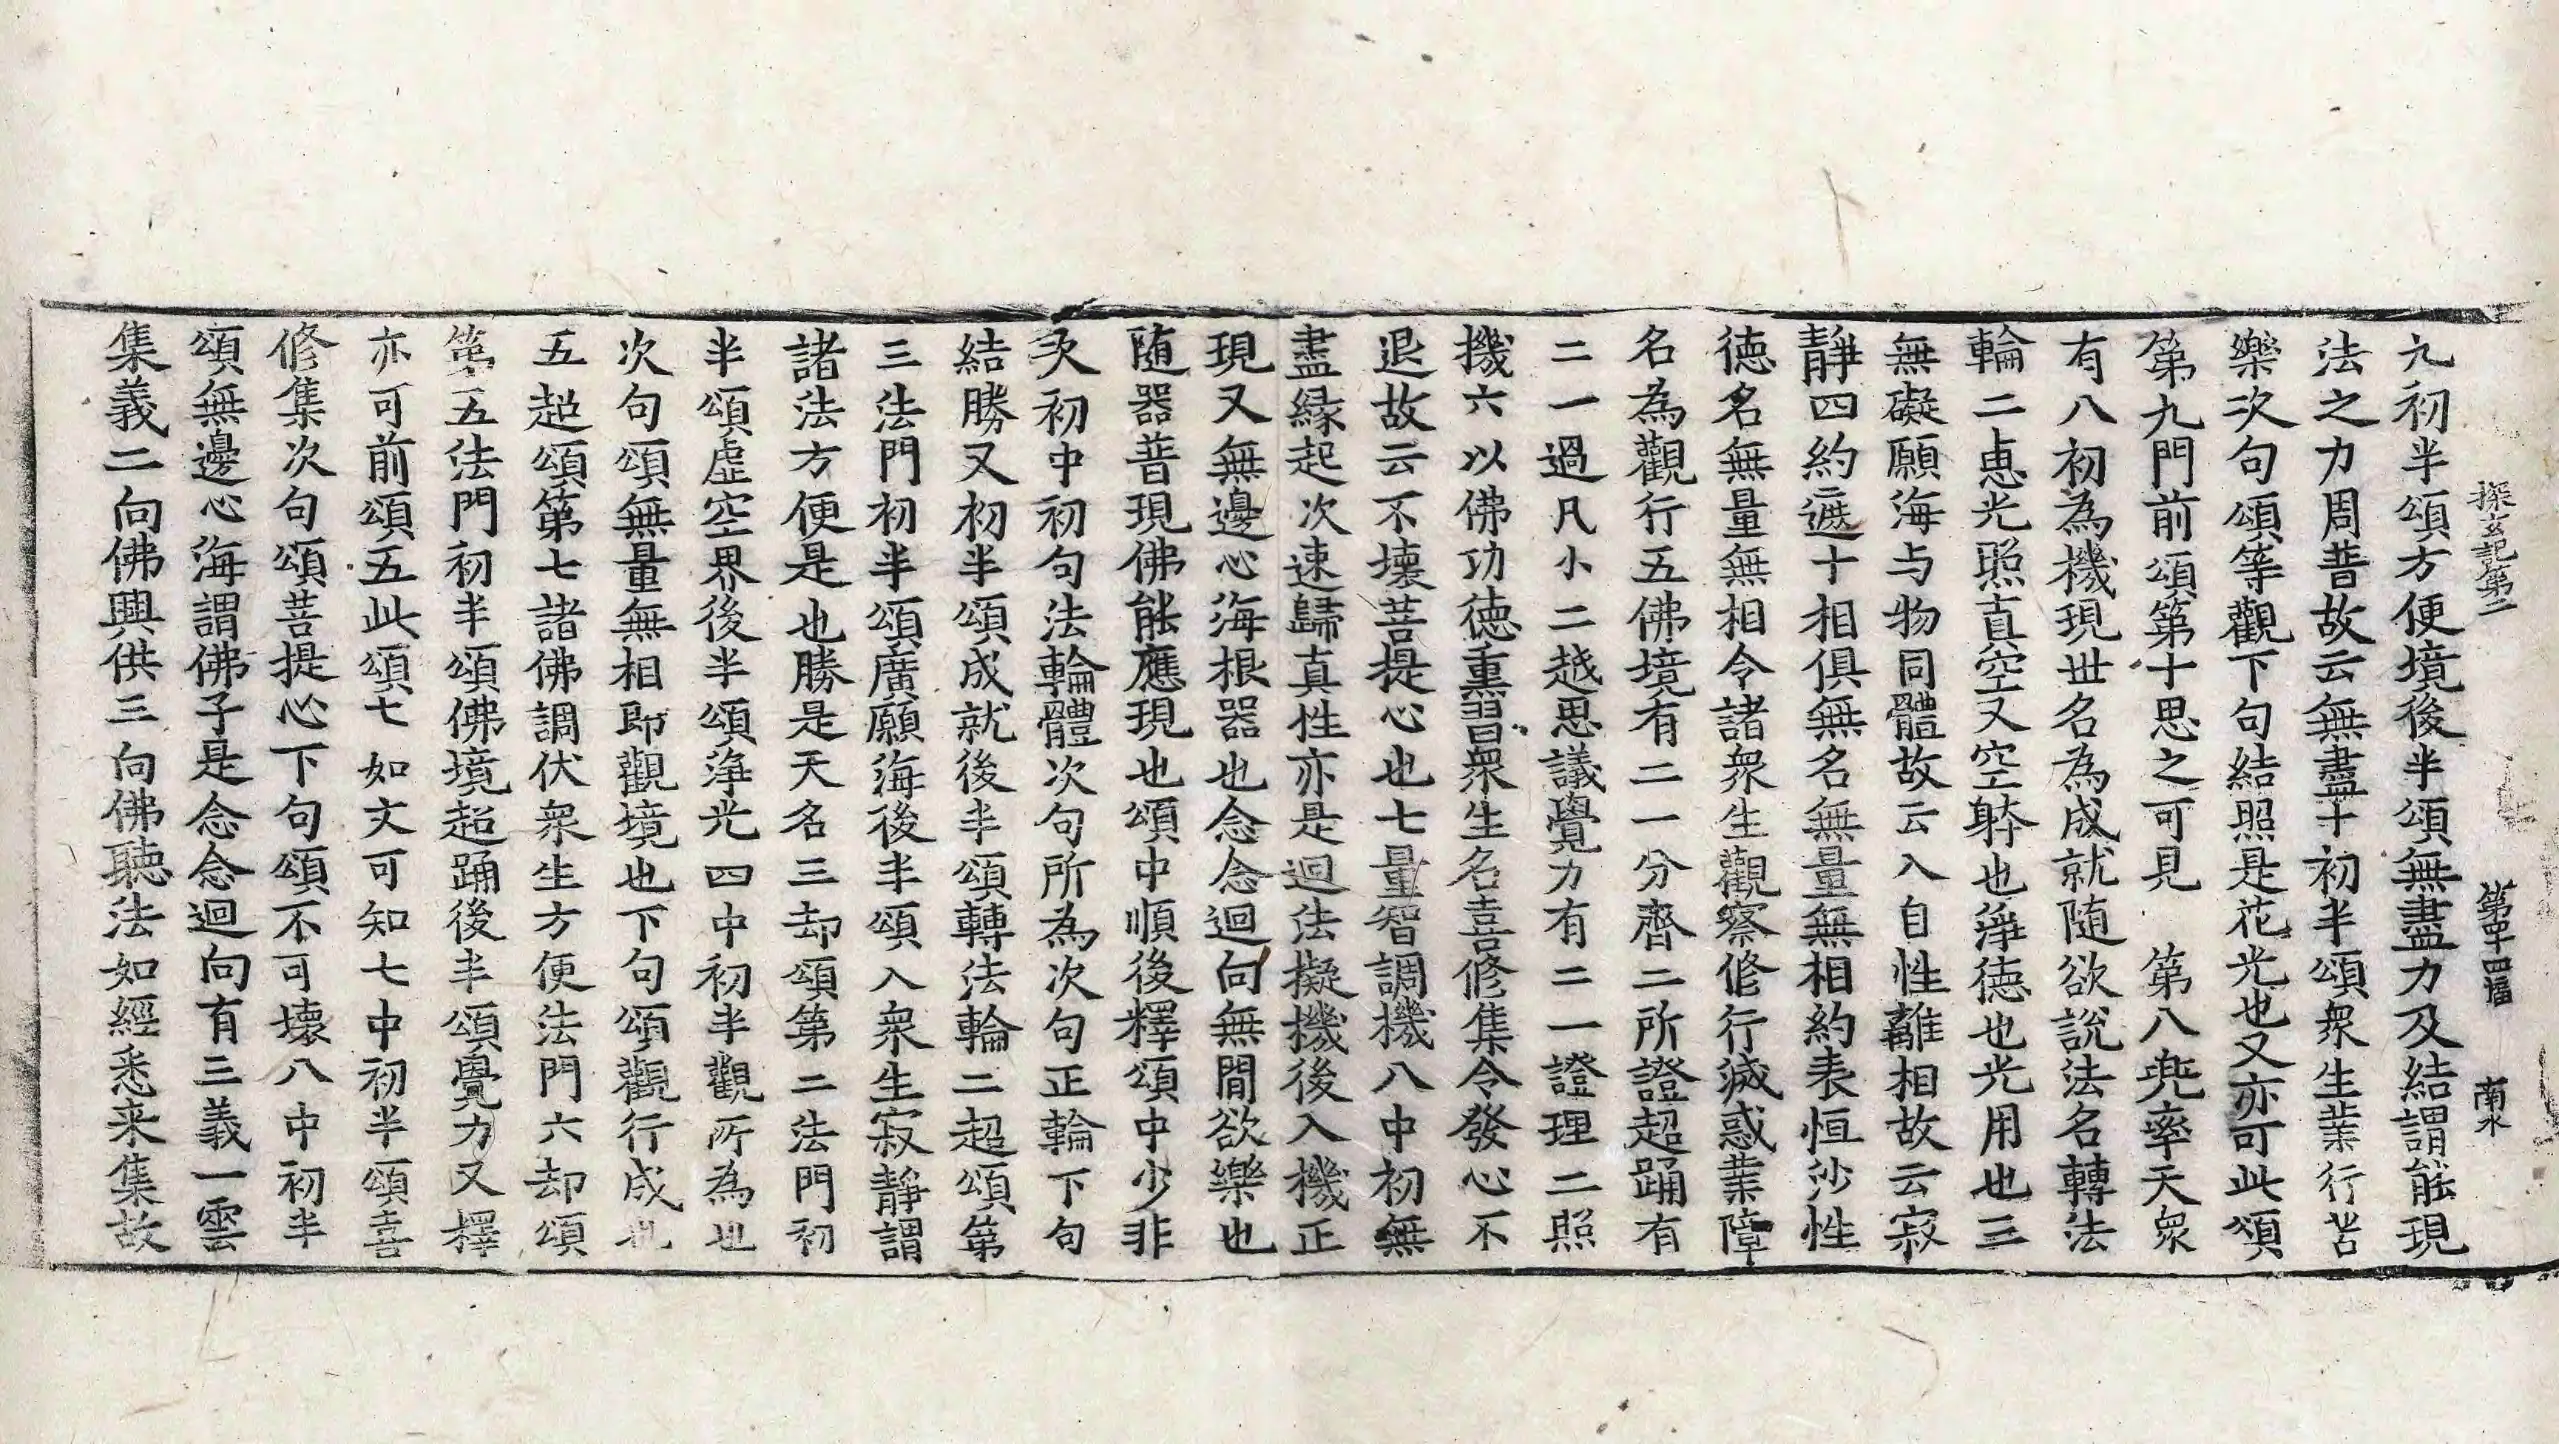 探玄記第二 第十四幅 南水
九初半頌方便境後半頌無盡力及結謂能現
法之力周普故云無盡十初半頌衆生業行苦
樂次句頌等觀下句結照是花光也又亦可此頌
第九門前頌第十思之可見 第八兠率天衆
有八初為機現丗名為成就随欲說法名轉法
輪二㥁光照真空又空䠶也淨德也光用也三
無礙願海与物同體故云入自性離相故云寂
靜四約遮十相俱無名無量無相約表恒沙性
徳名無量無相令諸衆生觀察修行滅惑業障
名為觀行五佛境有二一分齊二所證超踊有
二一過凡小二越思議覺力有二一證理二照
機六以佛功德熏習衆生名喜修集令發心不
退故云不壞菩提心也七量智調機八中初無
盡緣起次速歸真性亦是迴法擬機後入機正
現又無邊心海根器也念念迴向無間欲樂也
随器普現佛能應現也頌中順後釋頌中少非
次初中初句法輪體次句所為次句正輪下句
結勝又初半頌成就後半頌轉法輪二超頌第
三法門初半頌廣願海後半頌入衆生寂靜謂
諸法方便是也勝是天名三却頌第二法門初
半頌虛空界後半頌淨光四中初半觀所為也
次句頌無量無相即觀境也下句頌觀行成也
五超頌第七諸佛調伏衆生方便法門六却頌
第五法門初半頌佛境超踊後半頌覺力又釋
亦可前頌五此頌七如文可知七中初半頌喜
修集次句頌菩提心下句頌不可壞八中初半
頌無邊心海謂佛子是念念迴向有三義一雲
集義二向佛興供三向佛聽法如經悉来集故